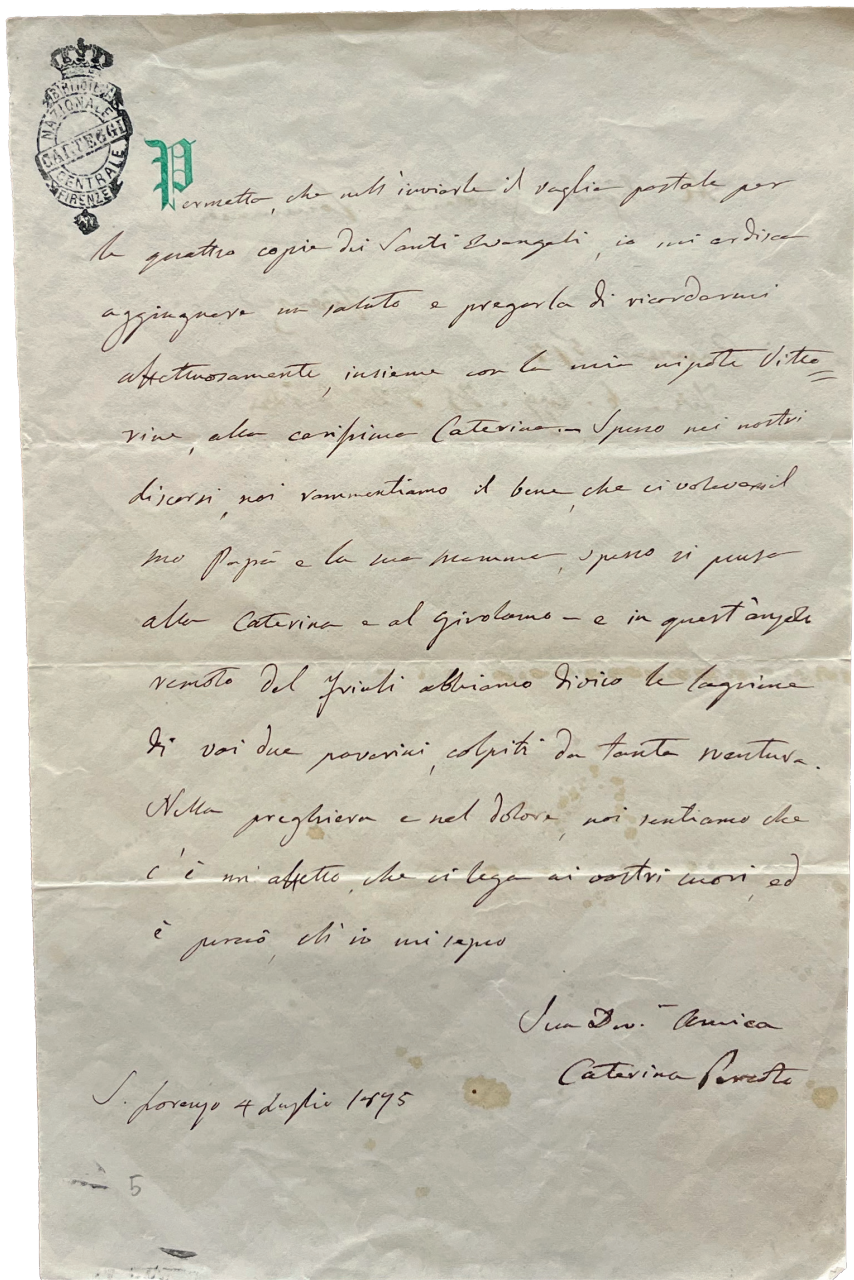 BIBLIOTECA
NAZIONALE
CARTEGGI
CENTRALE
FIRENZE
Permetta, che nell'inviarle il vaglia postale per
le quattro copie dei Santi Evangeli, io mi ardisca
aggiugnere un saluto e pregarla di ricordarmi
affettuosamente, insieme con la mia nipote Vitto=
rina, alla carissima Caterina. – Spesso nei nostri
discorsi, noi rammentiamo il bene, che ci volevano il
suo Papà e la sua mamma, spesso si pensa
alla Caterina e al Girolamo – e in quest'angolo
remoto del Friuli abbiamo diviso le lagrime
di voi due poverini, colpiti da tanta sventura.
Nella preghiera e nel dolore, noi sentiamo che
c'è un affetto, che ci lega ai vostri cuori, ed
è perciò, ch'io mi segno
Sua Dev.ma Amica
Caterina Percoto
S. Lorenzo 4 Luglio 1875
5